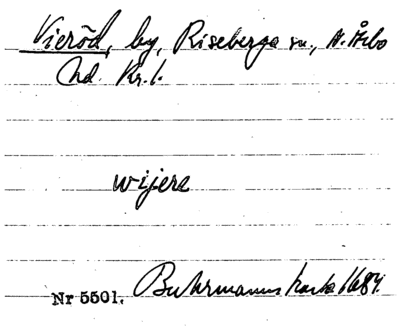 Vieröd, by, Riseberga sn., N. Åsbo
hd. Kr. l.
wijerz
Nr 5501. Buhrmanns karta 1684.